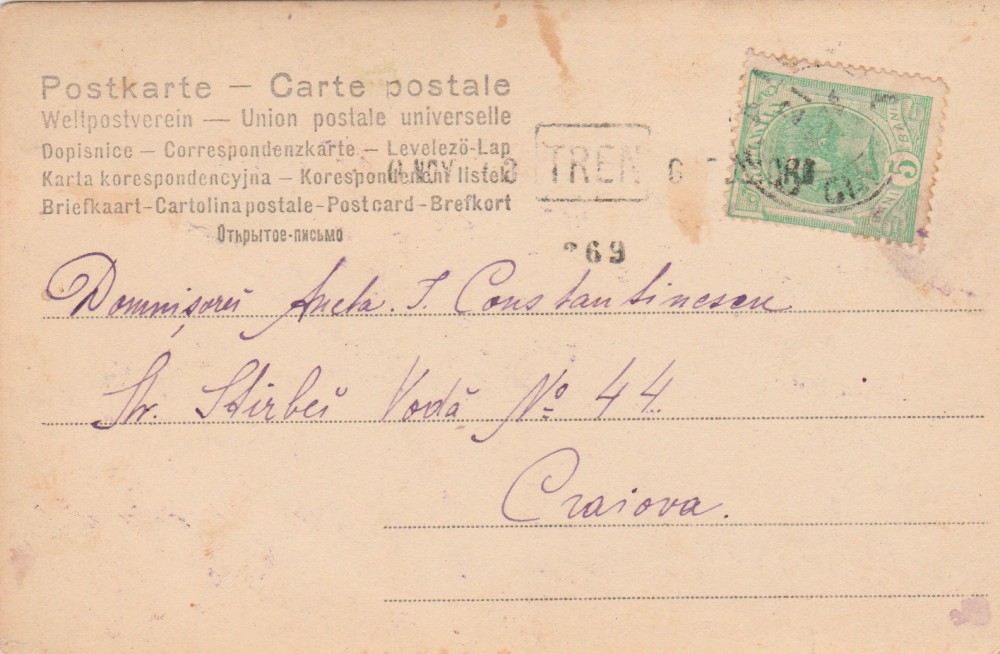 Postkarte — Carte postale
Weltpostverein — Union postale universelle
Dopisnice — Correspondenzkarte — Levelezö-Lap
Karta korespondencyjna — Korespondenční listek
Briefkaart-Cartolina postale-Post card-Brefkort
Открытое-письмо
NOV TREN
69
5 BANI
Domnișorei Aneta. I. Constantinescu
Str. Stirbei Vodă No 44
Craiova.